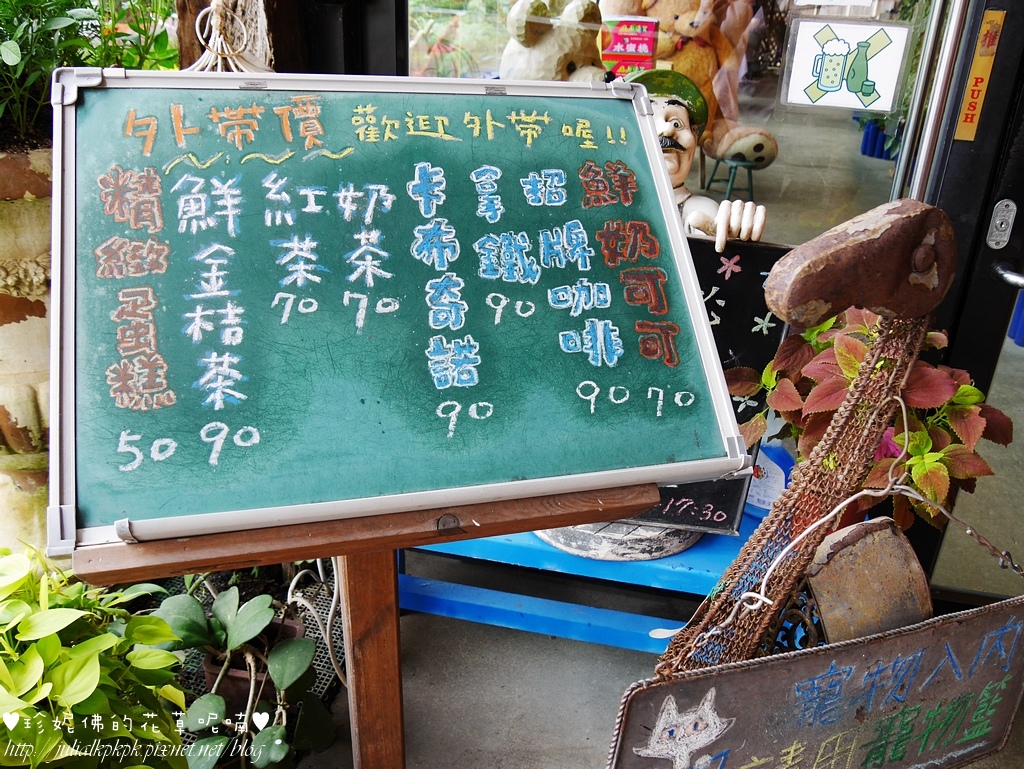 外帶價 歡迎外帶喔!!
精緻蛋糕 50
鮮金桔茶 90
紅茶 70
奶茶 70
卡布奇諾 90
拿鐵 90
招牌咖啡 90
鮮奶可可 70
水蜜桃
推
PUSH
17:30
寵物入內
請用寵物籃
♥珍妮佛的花草呢喃♥
http://julialkpkpk.pixnet.net/blog